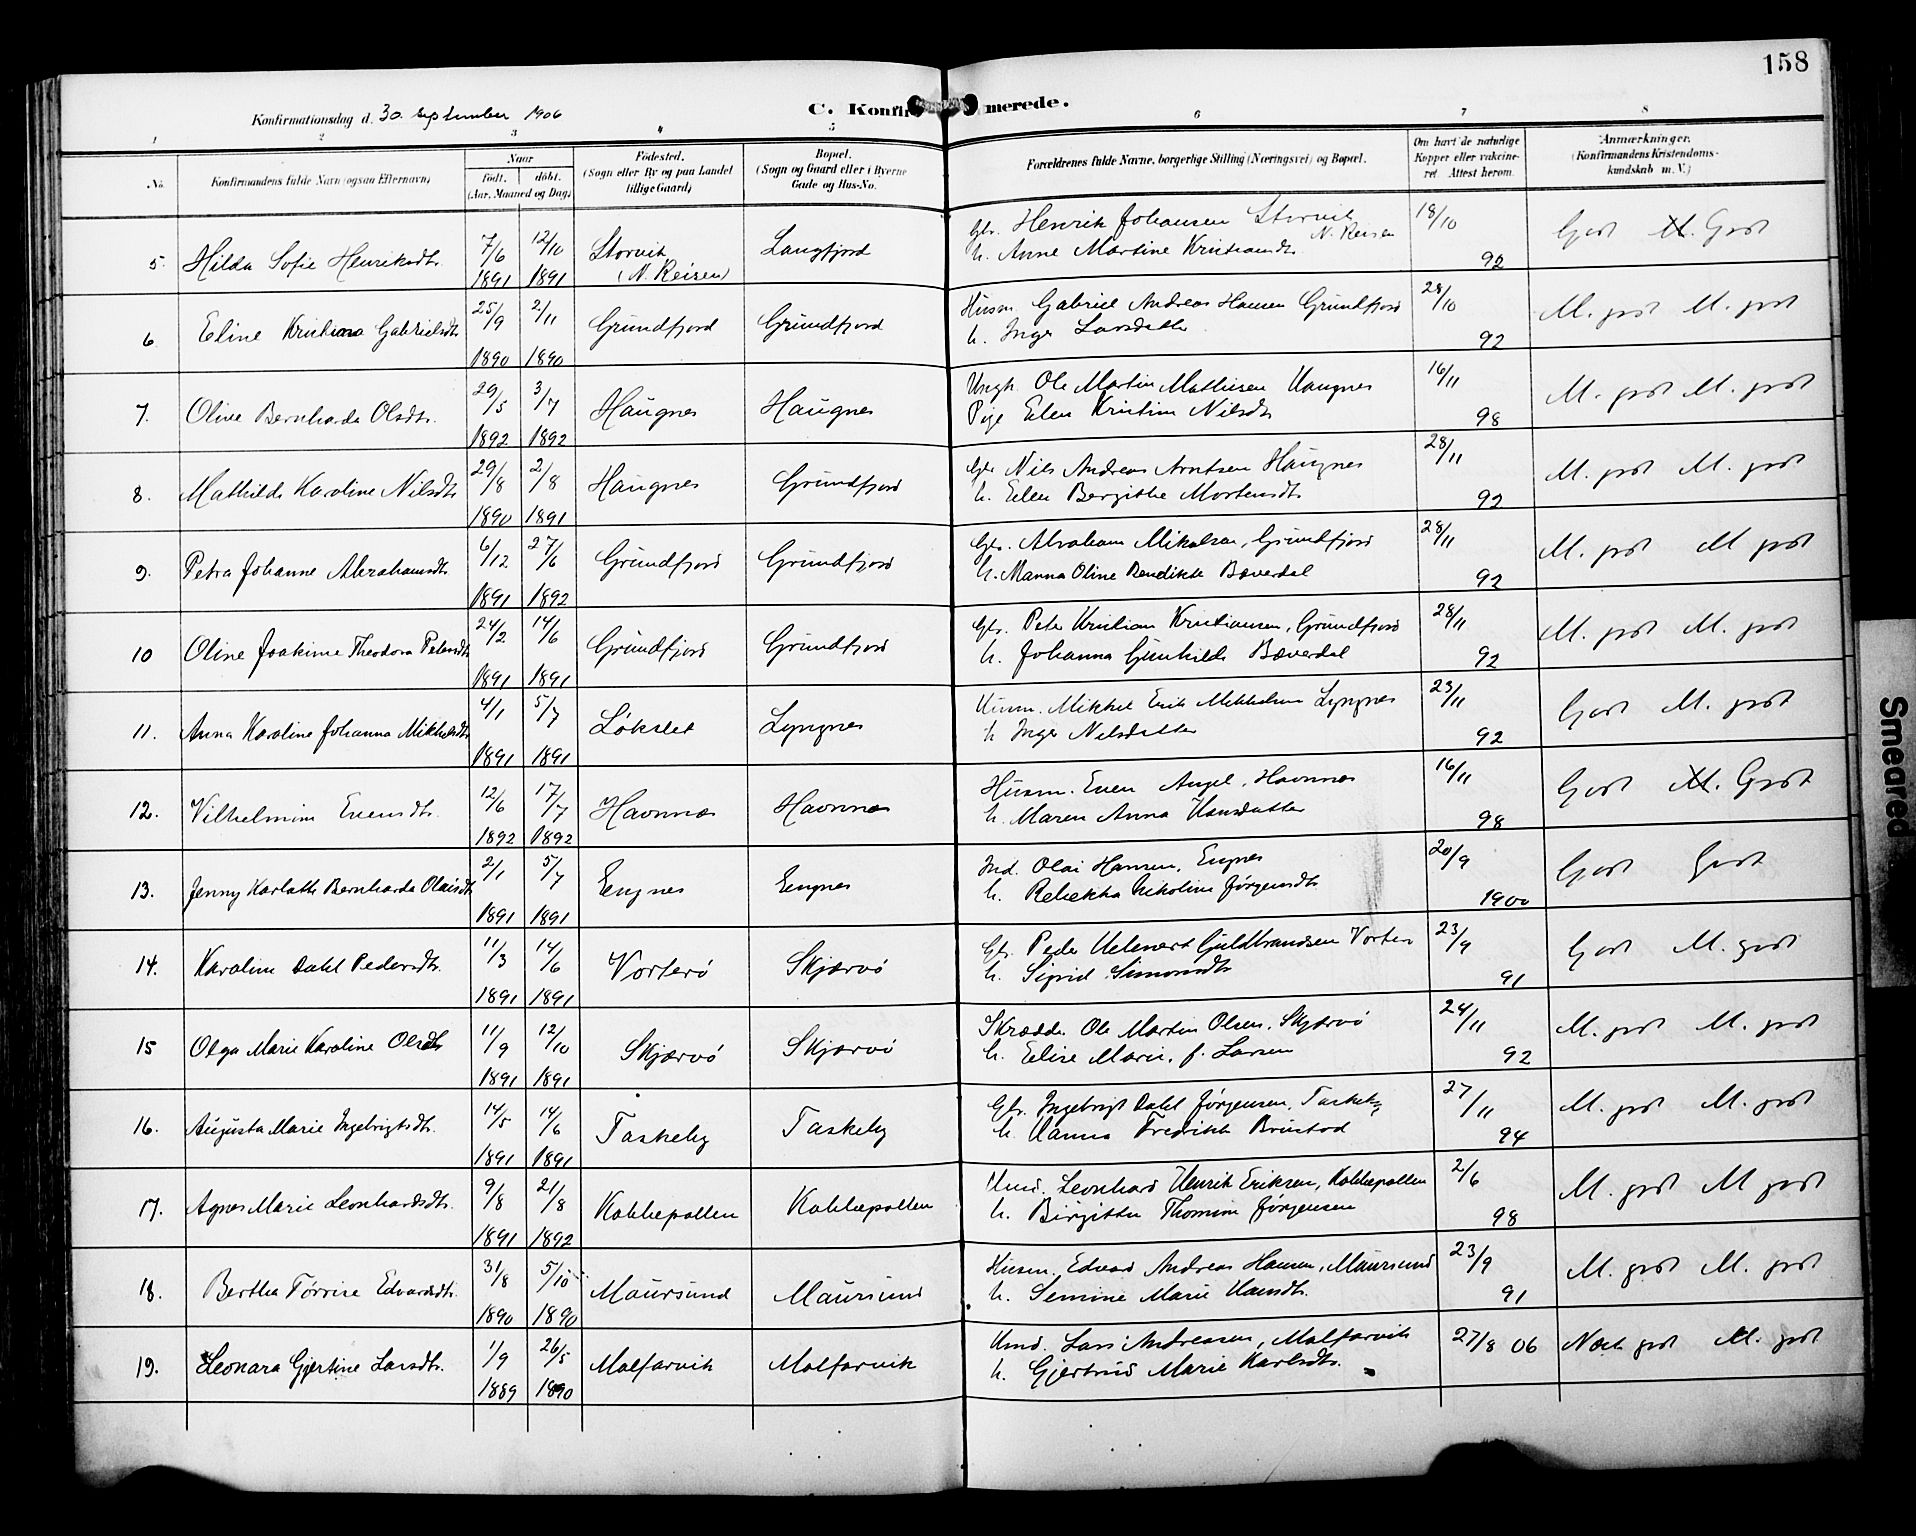 158
Konfirmationsdag d. 30. September 1906
C. Konfir merede.
1 2 3 4 5 6 7 8
No. Konfirmandens fulde Navn (ogsaa Efternavn)
Naar
födt. döbt.
(Aar, Maaned og Dag)
Födested.
(Sogn eller By og paa Landet
tillige Gaard)
Bopæl.
(Sogn og Gaard eller i Byerne
Gade og Hus-No.
Forældrenes fulde Navne, borgerlige Stilling (Næringsvei) og Bopæl.
Om havt de naturlige
Kopper eller vakcine-
ret. Attest herom.
Anmærkninger.
(Konfirmandens Kristendoms-
kundskab m. V.)
5. Hilda Sofie Henriksdtr. 7/6 1891 12/10 1891 Storvik (N. Reisen) Langfjord
Gbr. Henrik Johansen Storvik N. Reisen
h. Anne Martine Kristiansdtr. 18/10 92 Godt M. Godt
6. Eline Kristiana Gabrielsdtr 25/9 1890 2/11 1890 Grundfjord Grundfjord
Husm. Gabriel Andreas Hansen Grundfjord
h. Inger Larsdatter 28/10 92 M. godt M. godt
7. Olive Bernharda Olsdtr. 29/5 1892 3/7 1892 Haugnes Haugnes
Ungk. Ole Martin Mathisen Haugnes
Pige Elen Kristine Nilsdtr 16/11 98 M. godt M. godt
8. Mathilde Karoline Nilsdtr 29/8 1890 2/8 1891 Haugnes Grundfjord
Gbr Nils Andreas Arntsen Haugnes
h. Elen Bergithe Mortensdtr 28/11 92 M. godt M. godt
9. Petra Johanne Abrahamsdtr. 6/12 1891 27/6 1892 Grundfjord Grundfjord
Gbr. Abraham Mikalsen, Grundfjord
h. Hanna Oline Bendikte Bæverdal 28/11 92 M. godt M godt
10 Oline Joakime Theodora Petersdtr 24/2 1891 14/6 1891 Grundfjord Grundfjord
Gbr. Peter Kristian Kristiansen, Grundfjord
h. Johanna Gunhilde Bæverdal 28/11 92 M. godt M. godt
11. Anna Karoline Johanna Mikkelsdtr 4/1 1891 5/7 1891 Løkslet Lyngnes
Husm. Mikkel Erik Mikkelsen Lyngnes
h Inger Nilsdatter 23/11 92 Godt M. godt
12. Vilhelmine Evensdtr. 12/6 1892 17/7 1892 Havnnæs Havnnæs
Husm. Even Angel, Havnnæs
h. Maren Anna Hansdatter 16/11 98 Godt M. Godt
13. Jenny Karlotte Bernharda Olaisdtr 2/1 1891 5/7 1891 Engnes Engnes
Ind. Olai Hansen, Engnes
h. Rebekka Nikoline Jørgensdtr 20/9 1900 Godt Godt
14. Karoline Dahl Pedersdtr. 11/3 1891 14/6 1891 Vorterø Skjærvö
Gbr. Peder Helmert Guldbrandsen Vorterø
h. Sigrid Simonsdtr 23/9 91 Godt M. godt
15 Olga Marie Karoline Olsdtr 11/9 1891 12/10 1891 Skjærvö Skjærvö
Skrædder Ole Martin Olsen, Skjærvö
h. Elise Marie, f. Larsen 24/11 92 M. godt M. godt
16. Augusta Marie Ingebrigtsdtr. 14/5 1891 14/6 1891 Taskeby Taskeby
Gbr. Ingebrigt Dahl Jørgensen, Taskeby
h. Hanna Fredrikke Brustad 27/11 94 M. godt M. godt
17. Agnes Marie Leonhardsdtr. 9/8 1891 21/8 1892 Kobbepollen Kobbepollen
Husmd. Leonhard Henrik Eriksen, Kobbepollen
h. Birgitte Thomine Jørgensen 2/6 98 M. godt M godt
18. Bertha Tørrise Edvardsdtr. 31/8 1890 5/10 1890 Maursund Maursund
Husm. Edvard Andreas Hansen, Maursund
h. Semine Marie Hansdtr. 23/9 91 M. godt M. godt
19. Leonara Gjertine Larsdtr. 1/9 1889 26/5 1890 Malfarvik Malfarvik
Husmd. Lars Andreasen, Malfarvik
h. Gjertrud Marie Karlsdtr. 27/8 06 Noch godt M. godt
Smeared